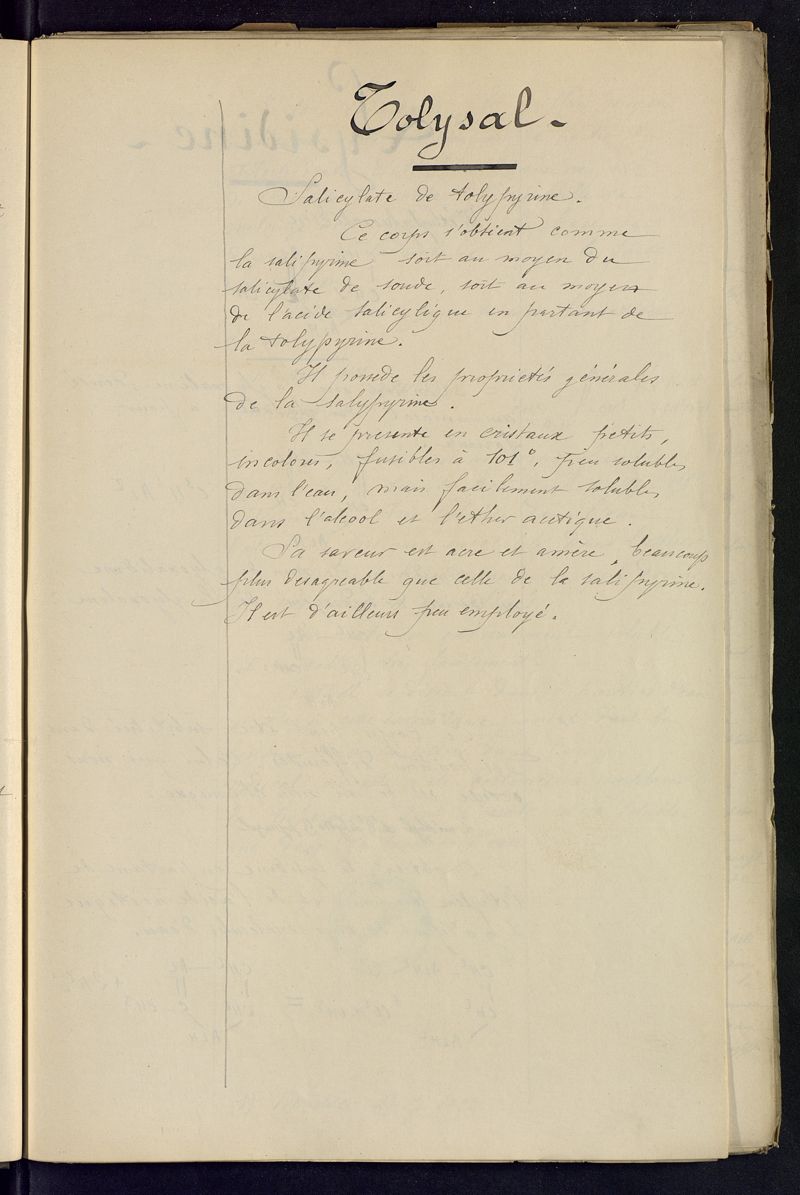 Tolysal -
Salicylate de tolypyrine.
Ce corps s'obtient comme
la salipyrine soit au moyen du
salicylate de soude, soit au moyen
de l'acide salicylique en partant de
la tolypyrine.
Il possede les proprietés générales
de la salypyrine.
Il se presente en cristaux petits,
incolores, fusibles à 101°, peu solubles
dans l'eau, mais facilement solubles
dans l'alcool et l'ether acetique.
Sa saveur est acre et amère, beaucoup
plus desagreable que celle de la salipyrine.
Il est d'ailleurs peu employé.